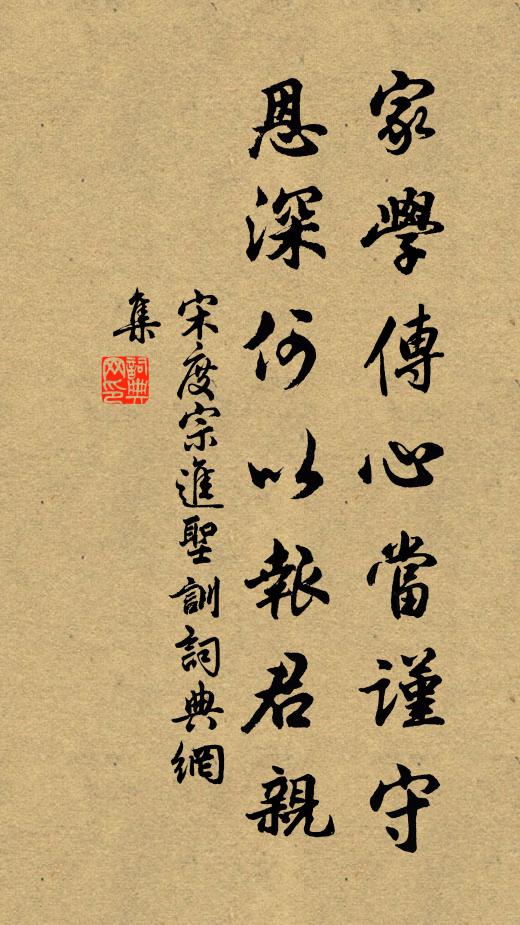 家學傳心當謹守
恩深何以報君親
宋度宗進聖訓詞典網
集
詞典網印